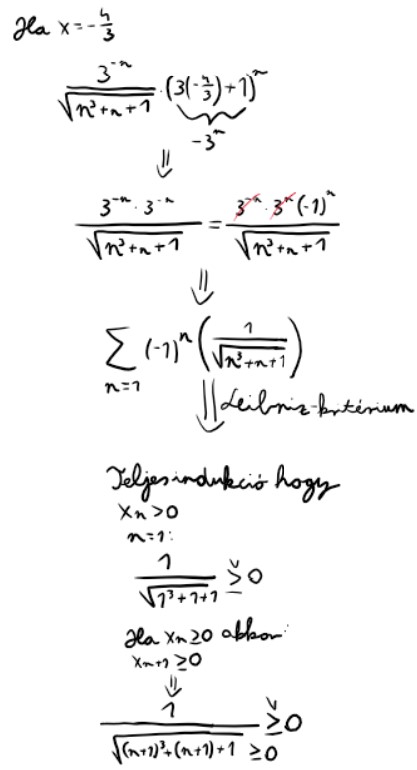 Ha x=-4/3
3^{-n}/√(n³+n+1) · (3(-4/3)+1)^n
-3^n
⇓
3^{-n}·3^{-n}/√(n³+n+1) = 3^{-n}·3^n(-1)^n/√(n³+n+1)
⇓
∑_{n=1} (-1)^n (1/√(n³+n+1))
⇓ Leibniz-kritérium
Teljes indukció hogy
x_n>0
n=1:
1/√(1³+1+1) ≥ 0
Ha x_n≥0 akkor:
x_{n+1}≥0
⇓
1/√((n+1)³+(n+1)+1) ≥0 ≥0